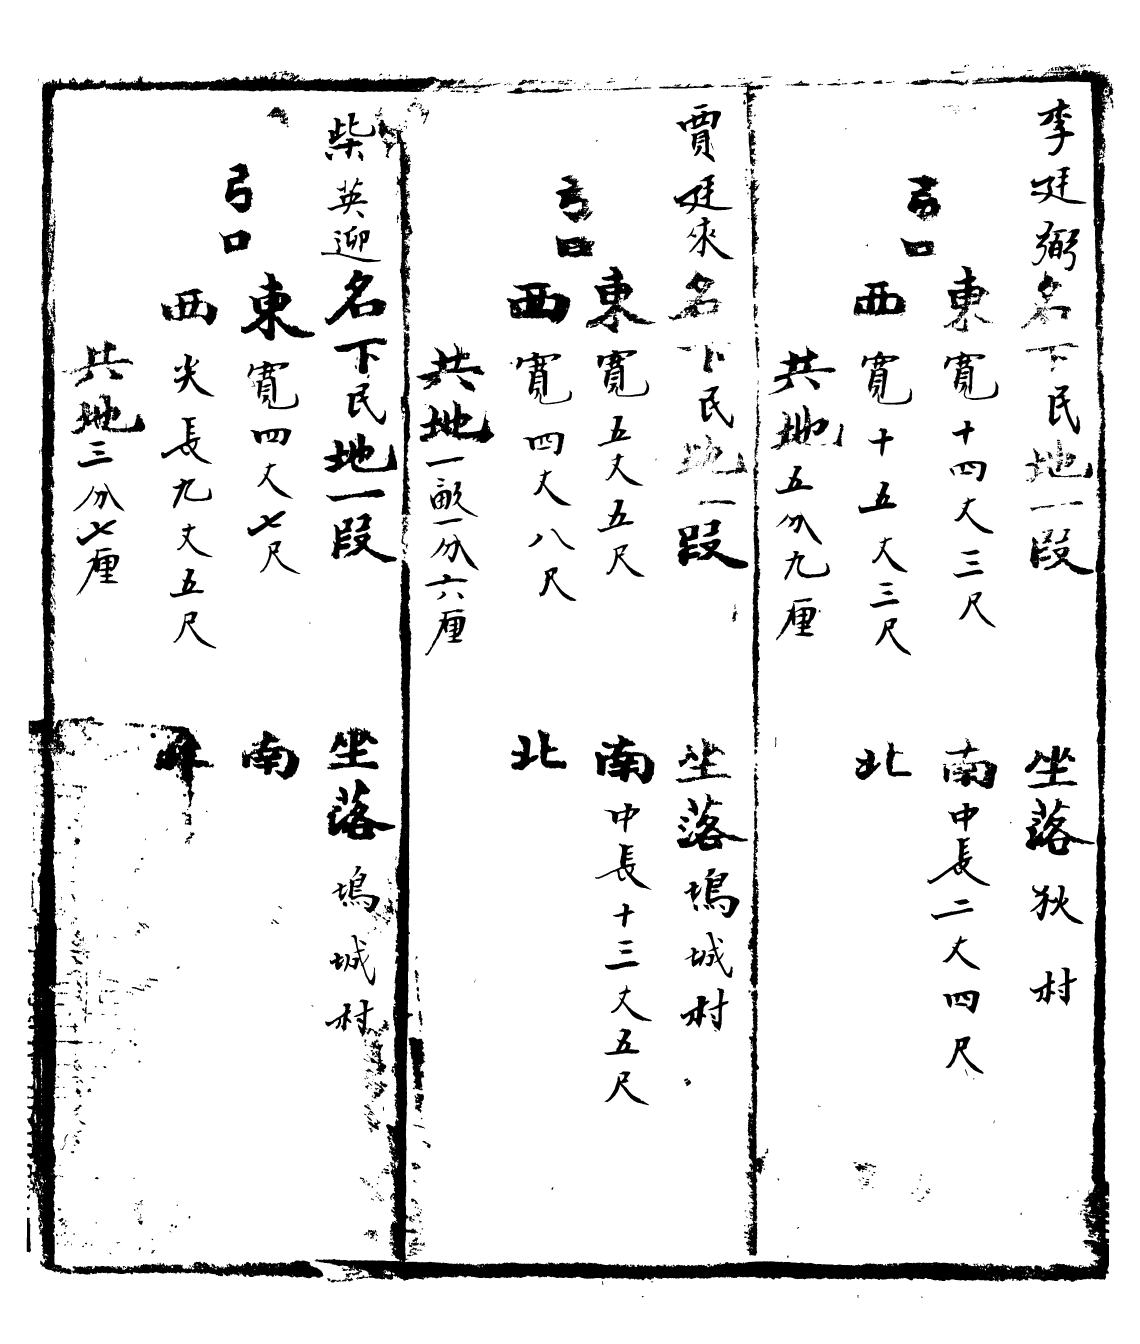 李廷弼名下民地一段
坐落狄村
弓口
東寬十四丈三尺
南中長二丈四尺
西寬十五丈三尺
北
共地五分九厘
賈廷來名下民地一段
坐落塢城村
弓口
東寬五丈五尺
南中長十三丈五尺
西寬四丈八尺
北
共地一畝一分六厘
柴英迎名下民地一段
坐落塢城村
弓口
東寬四丈七尺
南
西尖長九丈五尺
北
共地三分七厘